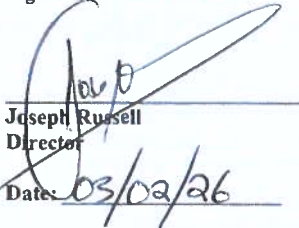 Joseph Russell
Director
Date: 03/02/26